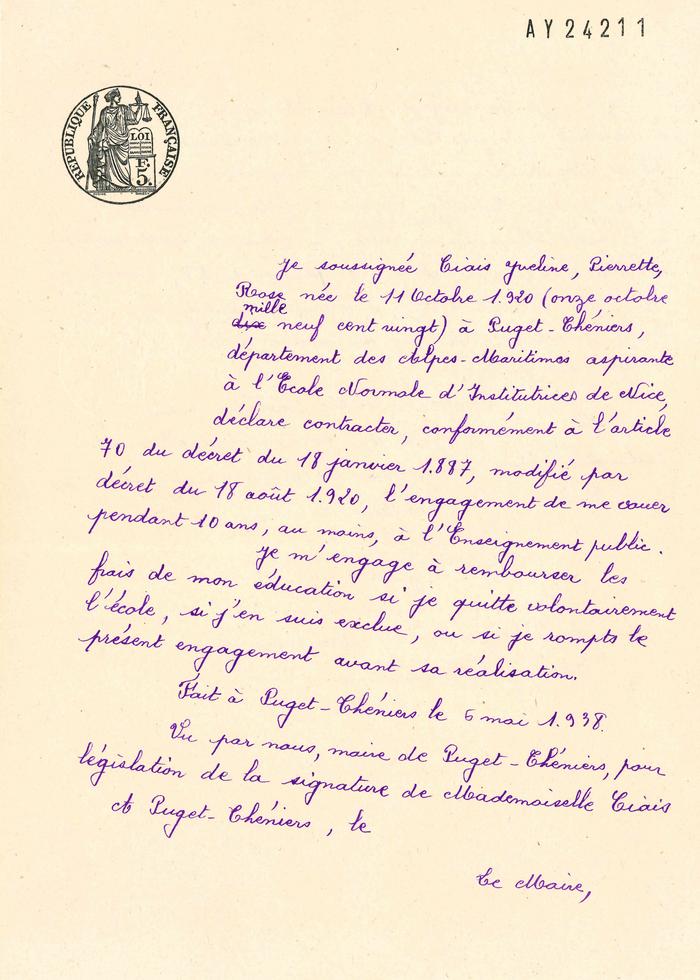 AY24211
RÉPUBLIQUE FRANÇAISE
LOI
F.
5.
Je soussignée Ciais Yveline, Pierrette,
Rose née le 11 Octobre 1.920 (onze octobre
mille
dix neuf cent vingt) à Puget-Théniers,
département des Alpes-Maritimes aspirante
à l'École Normale d'Institutrices de Nice,
déclare contracter, conformément à l'article
70 du décret du 18 janvier 1.887, modifié par
décret du 18 août 1.920, l'engagement de me vouer
pendant 10 ans, au moins, à l'Enseignement public.
Je m'engage à rembourser les
frais de mon éducation si je quitte volontairement
l'école, si j'en suis exclue, ou si je romps le
présent engagement avant sa réalisation.
Fait à Puget-Théniers le 6 mai 1.938.
Vu par nous, maire de Puget-Théniers, pour
législation de la signature de Mademoiselle Ciais
A Puget-Théniers, le
Le Maire,